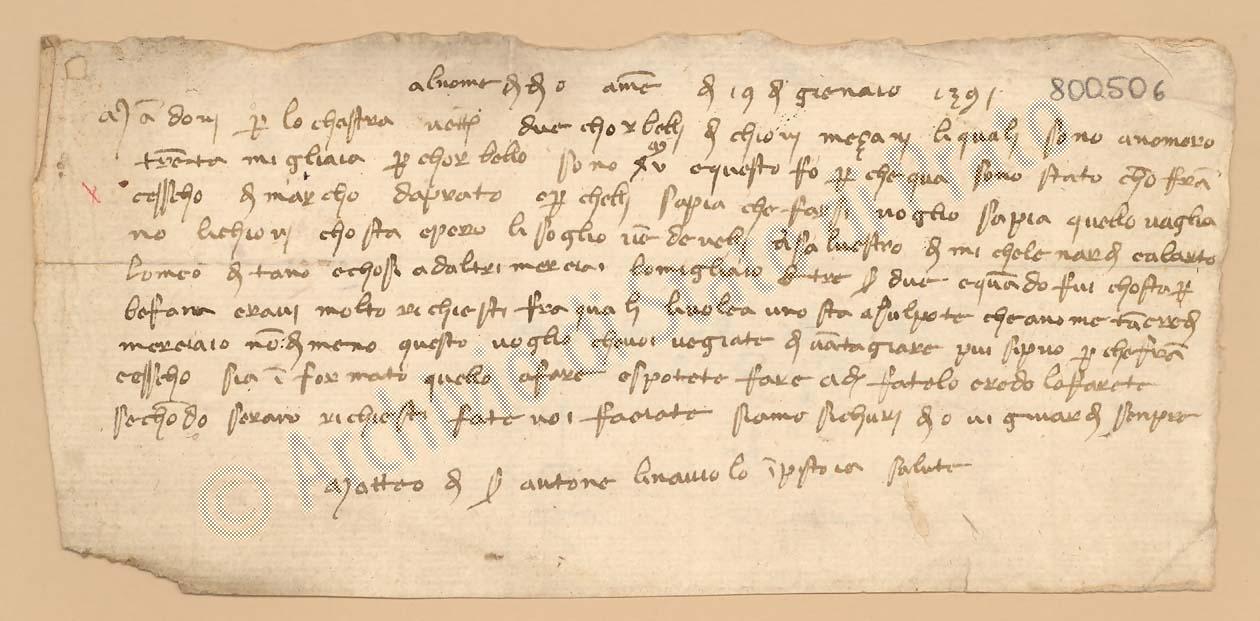 al nome di dio amē dì 19 di gienaio 1391 800506
Mādovi p lo chastra due chorbelli di chiovi meçani li quali sono anomoro
trēnta migliaia p chorbello sono XV e questo fo p che qua sono stato chō frā
cesscho di marcho daprato e p chelli sapia che farsi voglio sapia quelo vaglia
no li chiovi chosta e pero li soglio vēdere a salvestro di michele nardi e a barto
lomeo di tano e chosi ad altri merciai lo migliaio tre s due e quādo fui chosta p
befana eravi molto richiesti fra quali li volea uno sta a che a nome tācredi
merciaio nō di meno questo voglio che voi vegiate di vātagiare piu si puo p che frā
cesscho sia īformato quello a fare e spotete fare a di fatelo credo lo farete
sechōdo serano richiesti fate voi faciate siamo sichuri dio vi guardi senpre
Matteo di s antone linaiuolo ī pstoia salute
© Archivio di Stato di Prato